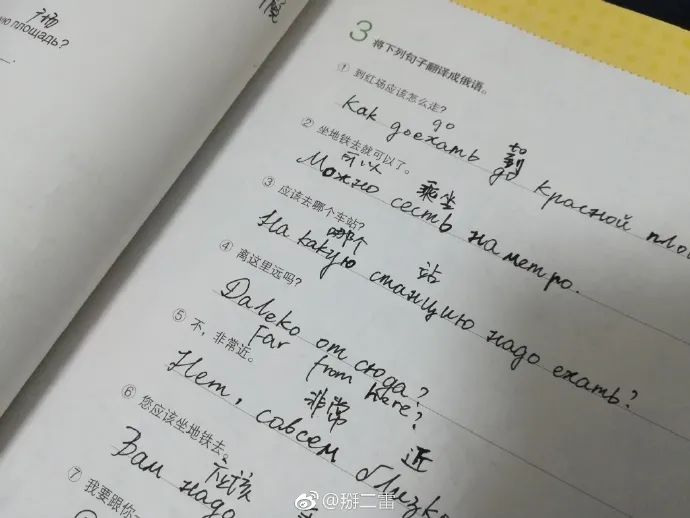 广场
площадь?
院
3 将下列句子翻译成俄语。
① 到红场应该怎么走?
go
to
到
Как доехать до красной пло
② 坐地铁去就可以了。
可以
乘坐
Можно сесть на метро.
③ 应该去哪个车站?
哪个
站
На какую станцию надо ехать?
④ 离这里远吗?
Daleko от сюда?
Far from here?
⑤ 不,非常近。
非常
近
Нет, совсем близко
⑥ 您应该坐地铁去。
应该
Вам надо
⑦ 我要跟你
@掰二雷